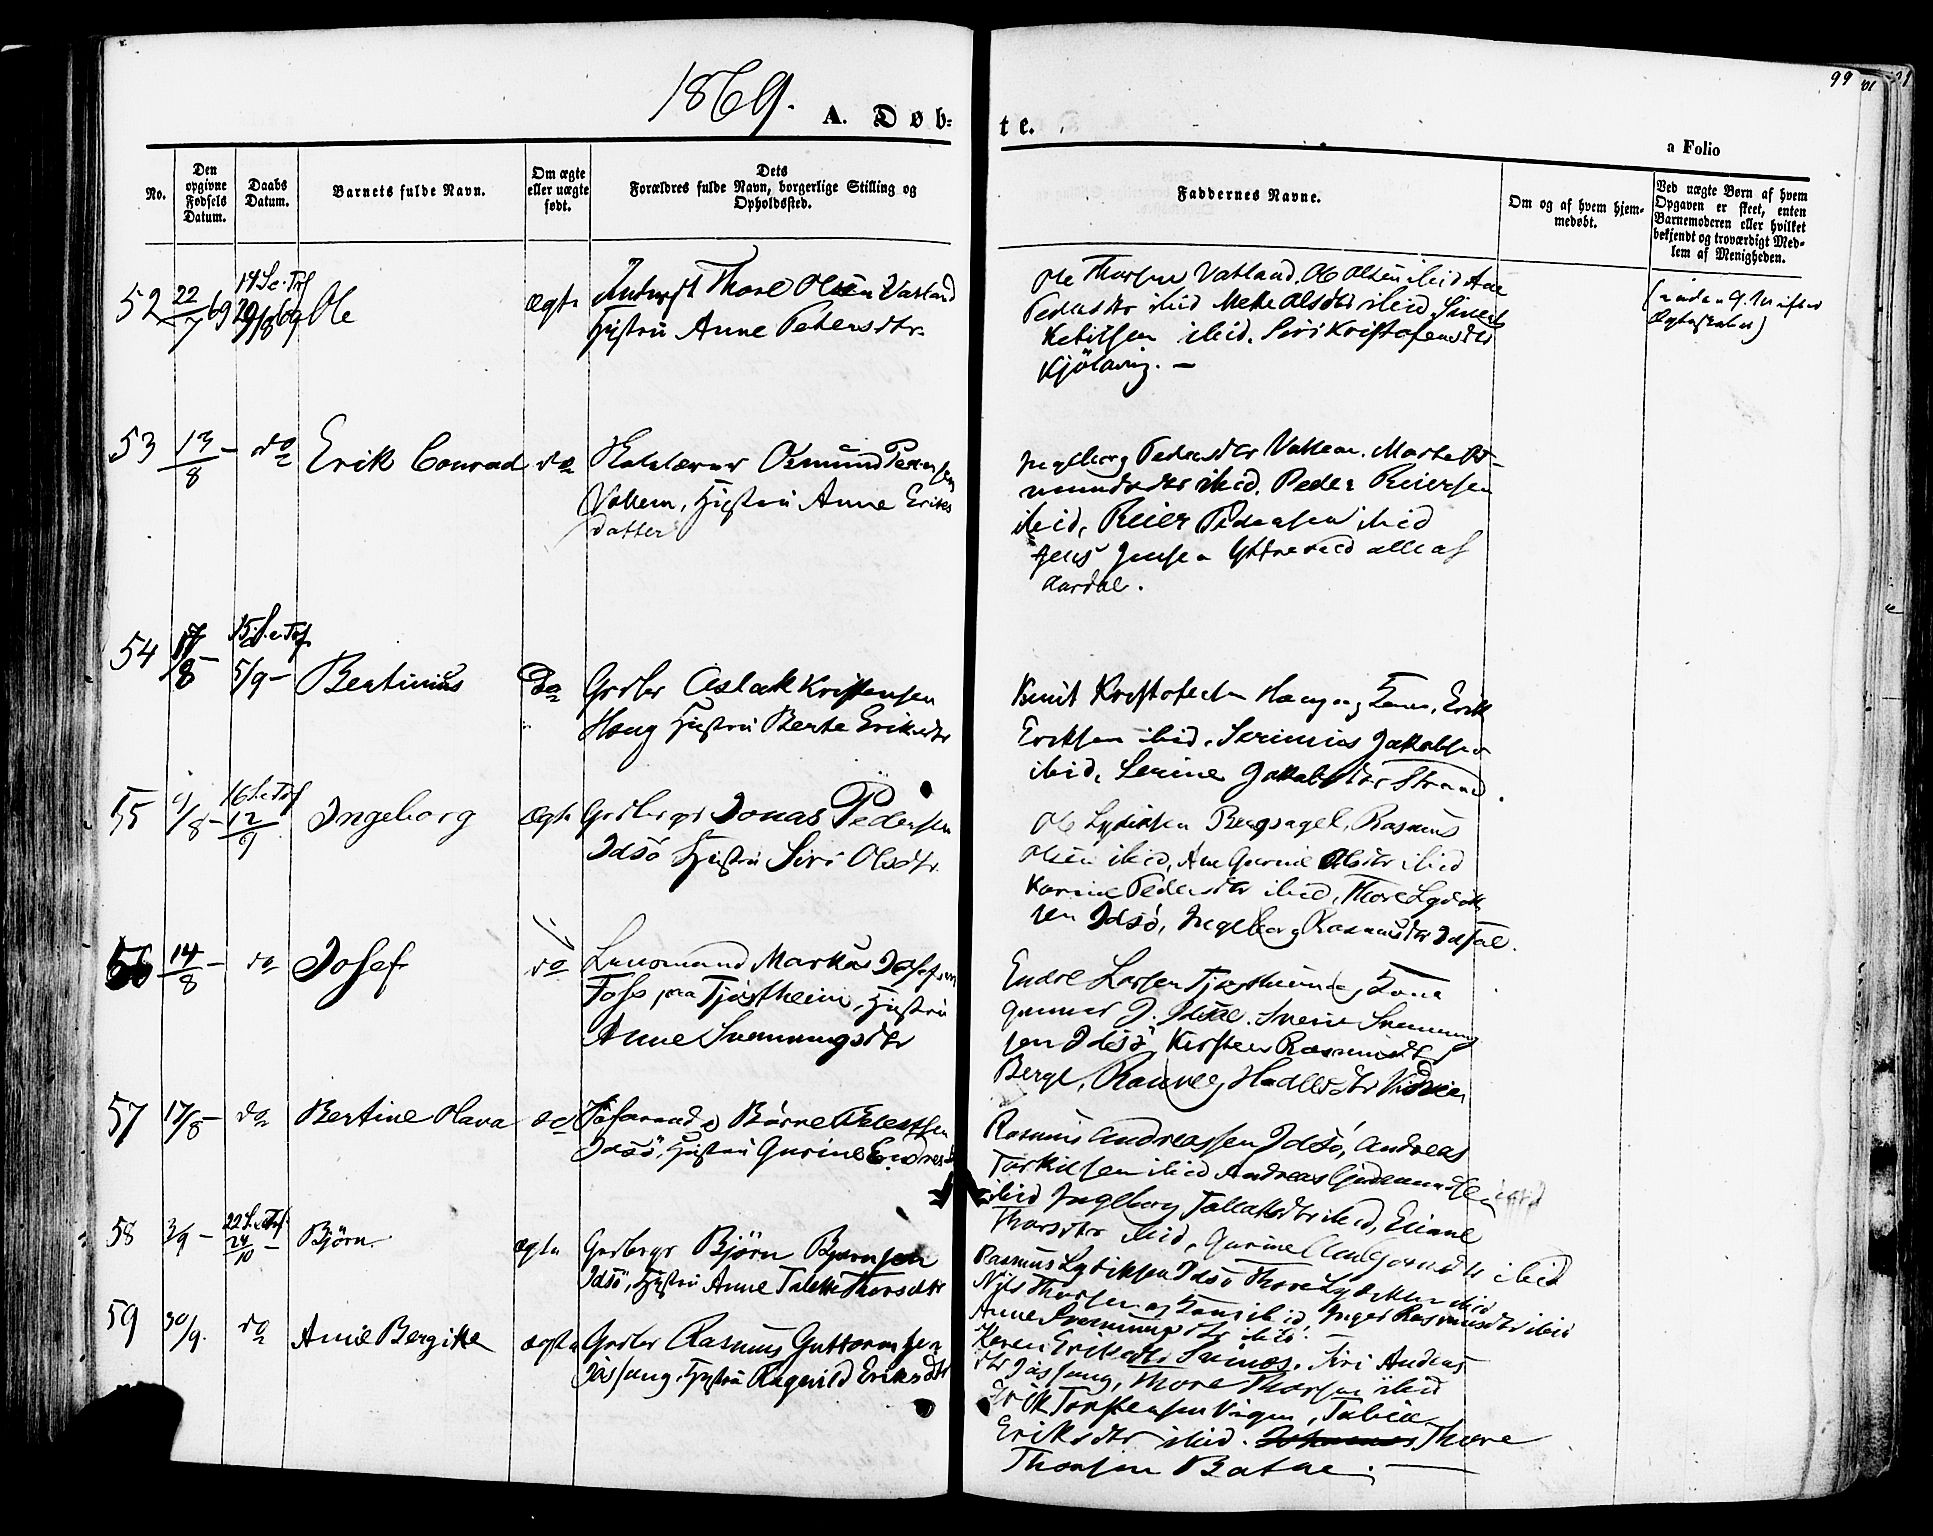 1869.
A. Døb-
te.
99
a Folio
No.
Den opgivne Fødsels Datum.
Daabs Datum.
Barnets fulde Navn.
Om ægte eller uægte født.
Dets Forældres fulde Navn, borgerlige Stilling og Opholdssted.
Faddernes Navne.
Om og af hvem hjemmedøbt.
Ved uægte Børn af hvem Opgaven er skeet, enten Barnemoderen eller hvilket bekjendt og troværdigt Medlem af Menigheden.
52 22/7 69 14 S. e. Trf 29/8 69 Ole ægte Thore Olsen Vatland
Hustru Anne Petersdtr.
Ole Thorsen Vatland. Ole Olsen ibid Ane
Pedersdtr ibid Mette Olsdtr ibid. Sivert
Ketilsen ibid. Siri Kristofersdtr
Kjölavig. —
53 13/8 – do Erik Conrad do Osmund Pedersen
Valem, Hustru Anne Eriks
datter
Ingeborg Pedersdtr Valem. Marte Os-
mundsdtr ibid. Peder Reiersen
ibid, Reier Pedersen ibid
Jens Jensen alle af
Aardal.
54 17/8 – 15 S. e. Trf 5/9 – Bertinius do Grdbr Aslak Kristensen
Haug Hustru Berte Eriksdtr
Knut Kristofersen Haug og Kone, Erik
Eriksen ibid. Serinius Jakobsen
ibid, Serine Jakobsdtr Strand.
55 9/8 – 16 S. e. Trf 12/9 Ingeborg ægte Grdbrgr Jonas Pedersen
Idsö Hustru Siri Olsdtr.
Ole Lydiksen Bergsagel, Rasmus
Olsen ibid, Ane Gurine Olsdtr ibid
Karine Pedersdtr ibid, Thore Lydik
sen Idsö, Ingeborg Rasmusdtr Idsal.
56 14/8 – do Josef do Lensmand Markus Josefsen
Foss paa Tjöstheim, Hustru
Anne Svenningsdtr
Endre Larsen Tjöstheim og Kone
Gunnar J. Idsal. Svenning
sen Idsö, Kirsten Rasmusdtr
Berge, Hadlesdtr
57 17/8 – do Bertine Olava do Börre
Idsö, Hustru Gurine Endresd
Rasmus Andreassen Idsö, Andreas
Torkilsen ibid Andreas Gudmundsen
ibid Ingeborg Tollaksdtr ibid, Eliane
Thorsdtr ibid, Gurine ibid
58 3/9 – 22 S. e. Trf. 24/10 – Björn ægte Grdbrgr Björn Bjørnsen
Idsö, Hustru Anne Talette Thorsdtr
Rasmus Lydiksen Idsö Thore Lydiksen ibid
Nils Thorsen og Kone ibid, Inger Rasmusdtr ibid
Anne Svenningsdtr ibid.
59 30/9. do Anne Bergitte ægte Grdbr Rasmus Guttormsen
Jössang. Hustru Ragnild Eriksdtr
Karen Eriksdtr Siri Anders
dtr Jössang, Thore Thorsen ibid
Erik Torstensen Vigen, Tabia
Eriksdtr ibid. Thore
Thorsen Botne. —